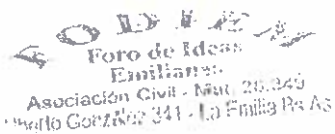 FODIEM
Foro de Ideas
Emilianas
Asociación Civil - Mat. 26.949
González 341 - La Emilia Bs As